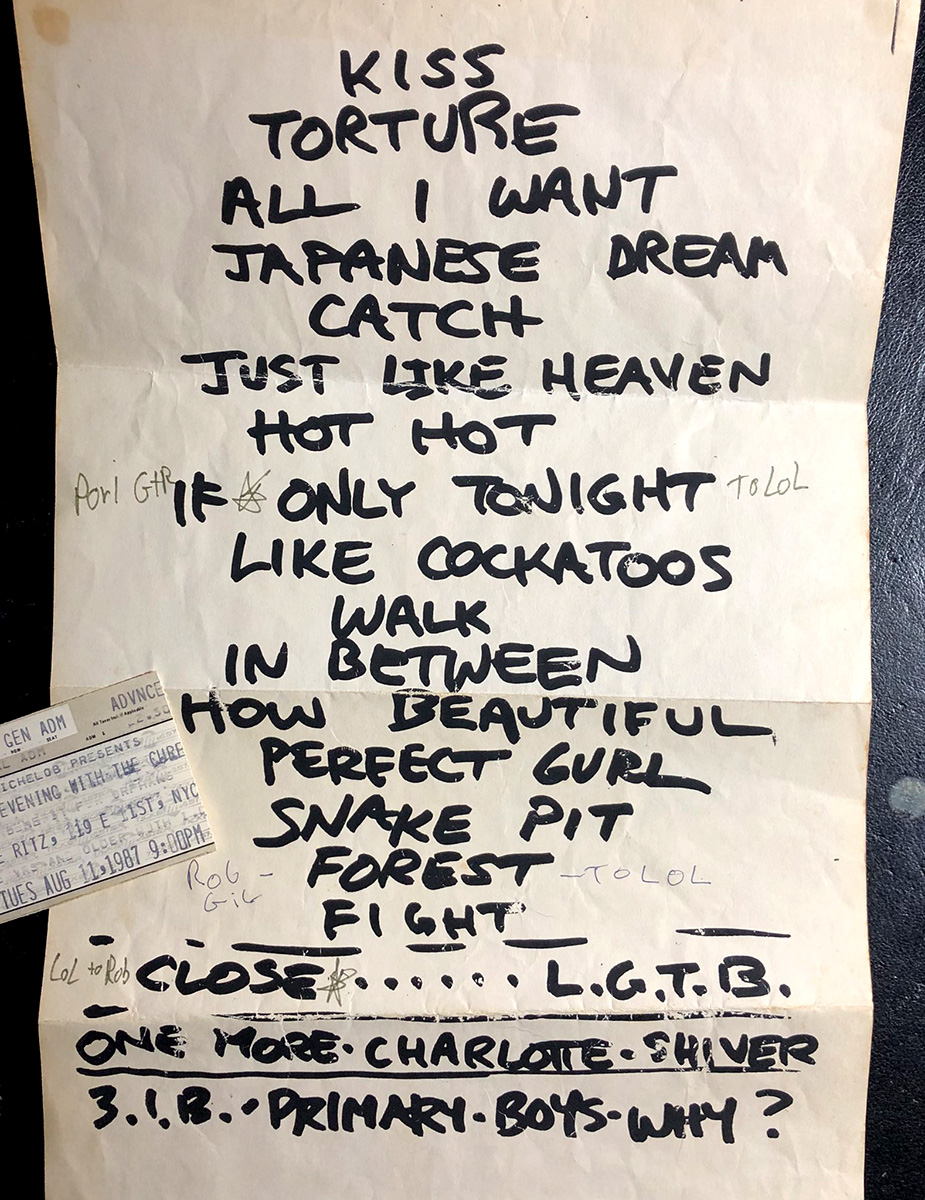 KISS
TORTURE
ALL I WANT
JAPANESE DREAM
CATCH
JUST LIKE HEAVEN
HOT HOT
Porl GtR IF ONLY TONIGHT TO LOL
LIKE COCKATOOS
WALK
IN BETWEEN
HOW BEAUTIFUL
PERFECT GURL
SNAKE PIT
Rob - FOREST - TO LOL
FIGHT
LOL to Rob CLOSE ...... L.G.T.B.
ONE MORE · CHARLOTTE · SHIVER
3.I.B. · PRIMARY · BOYS · WHY?
ADVNCE
GEN ADM
ADM
ICHELOB PRESENTS
EVENING WITH THE CURE
RITZ, 119 E 11ST, NYC
TUES AUG 11,1987 9:00PM